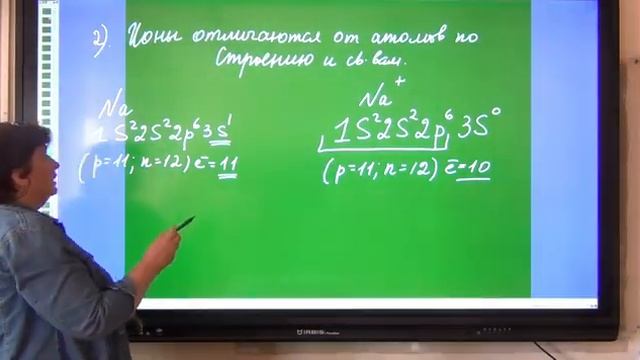 2). Ионы отличаются от атомов по
строению и св-вам.
Na
1S²2S²2p⁶3S¹
(p=11; n=12) ē=11
Na⁺
1S²2S²2p⁶3S⁰
(p=11; n=12) ē=10
IRBIS